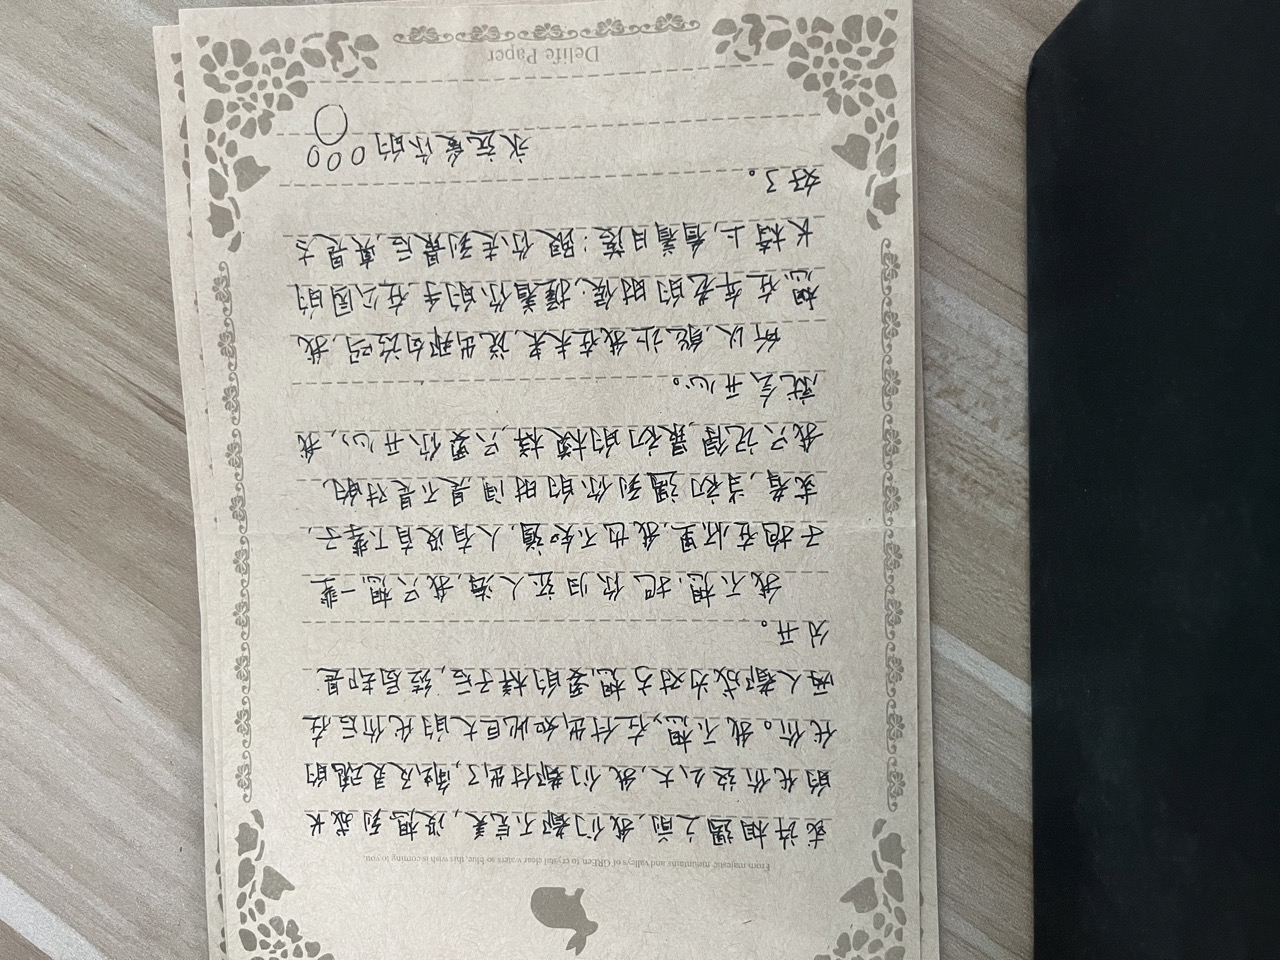 From majestic mountains and valleys of GREen to crystal clear waters so blue, this wish is coming to you.
或许相遇之前,我们都不完美,没想到成长
的代价这么大,我们都付出了,触及灵魂的
代价。我不想,在付出如此巨大的代价后在
两人都成为对方想要的样子后,结局却是
分开。
我不想,把你归还人海,我只想一辈
子抱在怀里,我也不知道,人有没有下辈子,
或者,当初遇到你的时间,是不是对的,
我只记得,最初的模样,只要你开心,我
就会开心。
所以,能让我在未来,说出那句话吗,我
想在年老的时候;握着你的手,在公园的
长椅上,看着日落:跟你走到最后,真是太
好了。
永远爱你的
Delife Paper